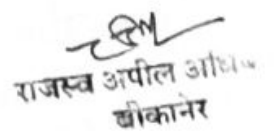 राजस्व अपील अधि
बीकानेर